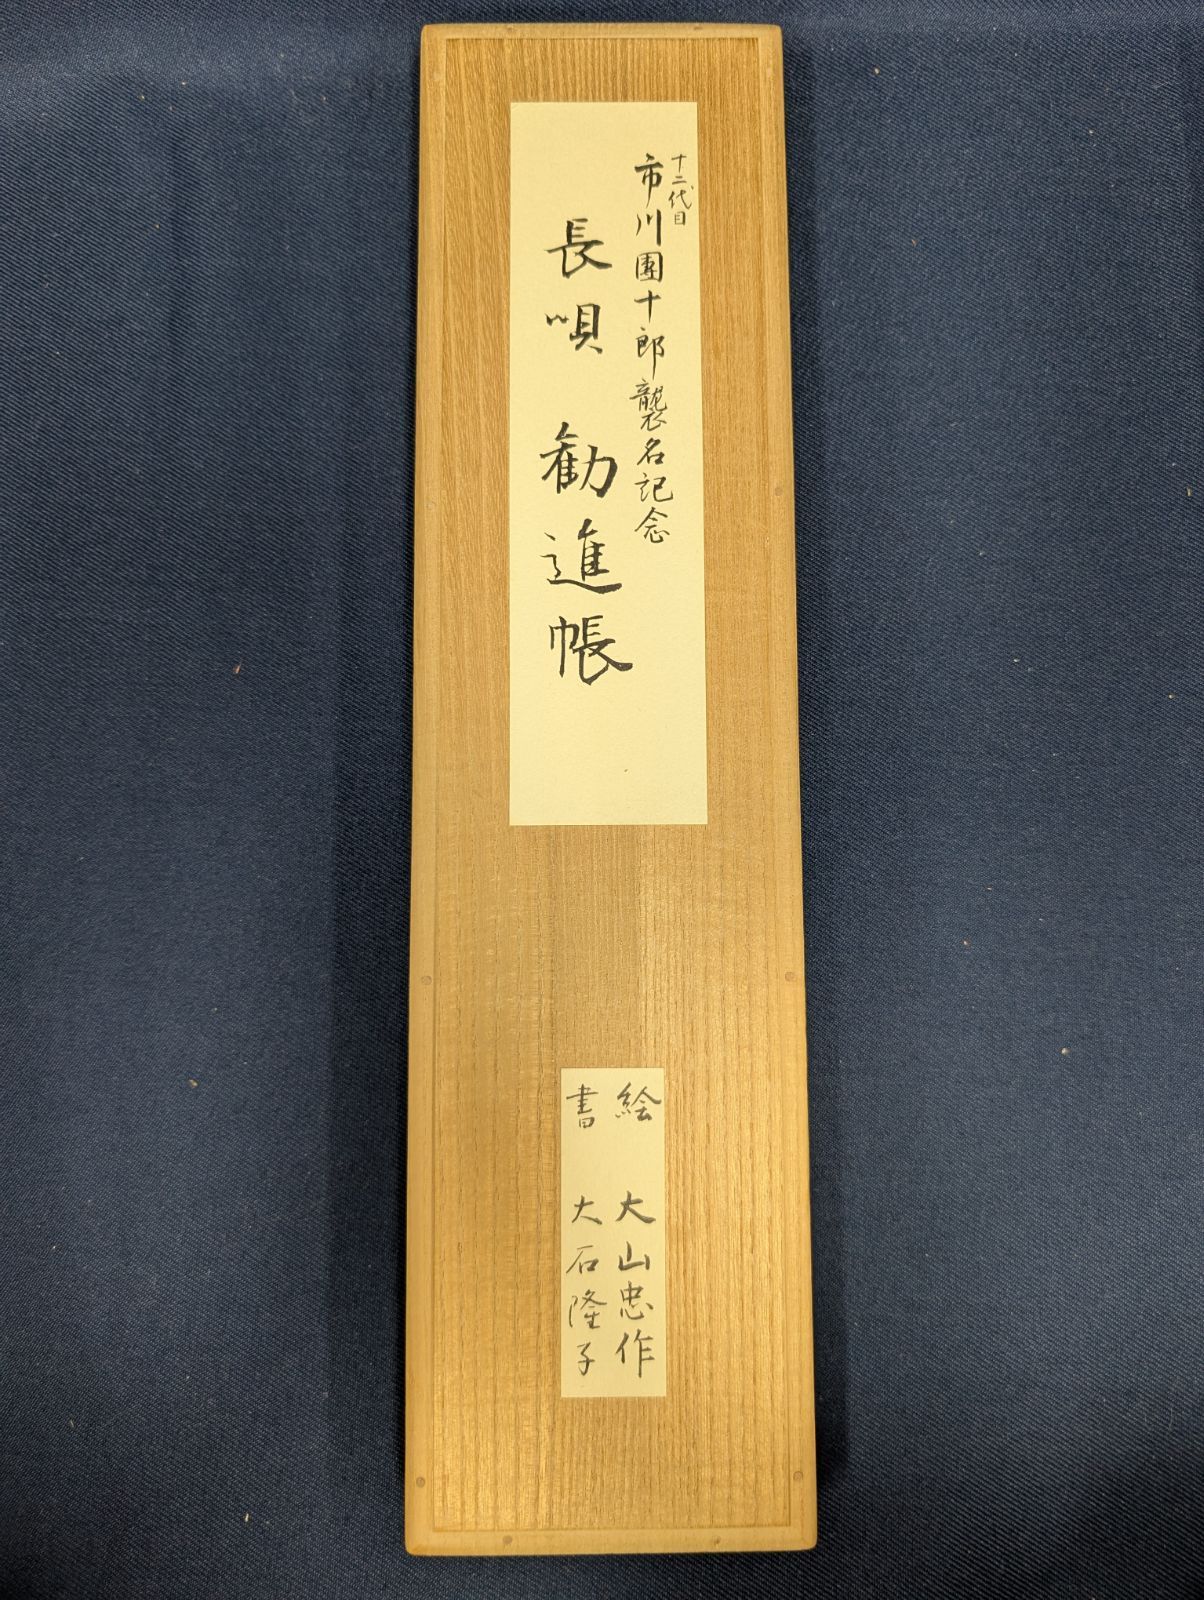 十二代目
市川團十郎襲名記念
長唄 勧進帳
絵 大山忠作
書 大石隆子